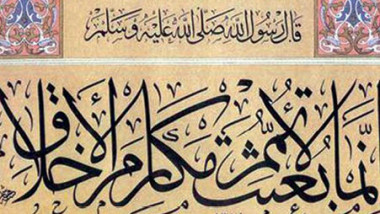 قَالَ رَسُولُ اللهِ صَلَّى اللهُ عَلَيْهِ وَسَلَّمَ
إنَّمَا بُعِثْتُ لِأُتَمِّمَ مَكَارِمَ الْأَخْلَاقِ